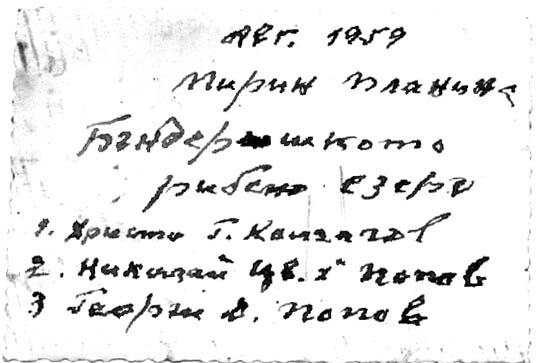 Авг. 1959
Пирин планина
Бъндеришкото
рибно езеро
1. Христо Г.
2. Николай Цв. Попов
3 Георги С. Попов